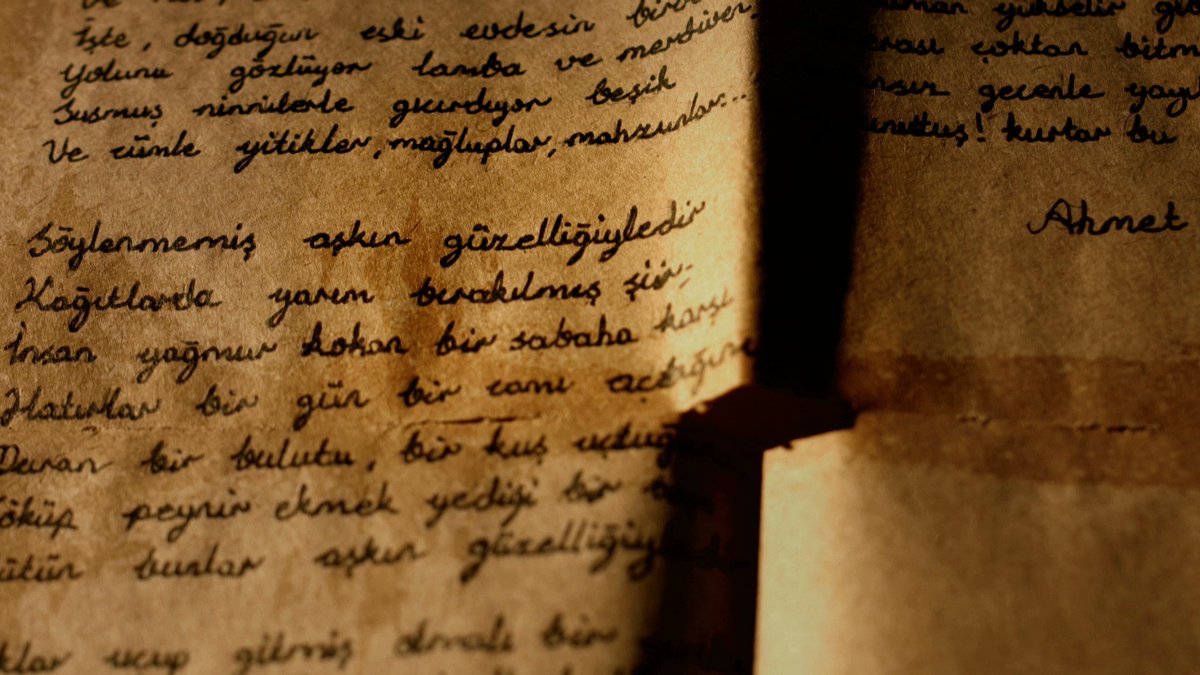 İşte, doğduğun eski evdesin
Yolunu gözlüyor lamba ve merdiven,
Susmuş ninnilerle gıcırdıyor beşik
Ve cümle yitikler, mağluplar, mahzunlar...
Söylenmemiş aşkın güzelliğiyledir
Kağıtlarda yarım bırakılmış şiir;
İnsan yağmur kokan bir sabaha karşı
Hatırlar bir gün bir camı açtığını
Duran bir bulutu, bir kuş uçtuğu
peynir ekmek yediği bir
bunlar aşkın güzelliğiyle
uçup gitmiş olmalı bir
yükselir
çoktan bitm
gecenle
kurtar bu
Ahmet